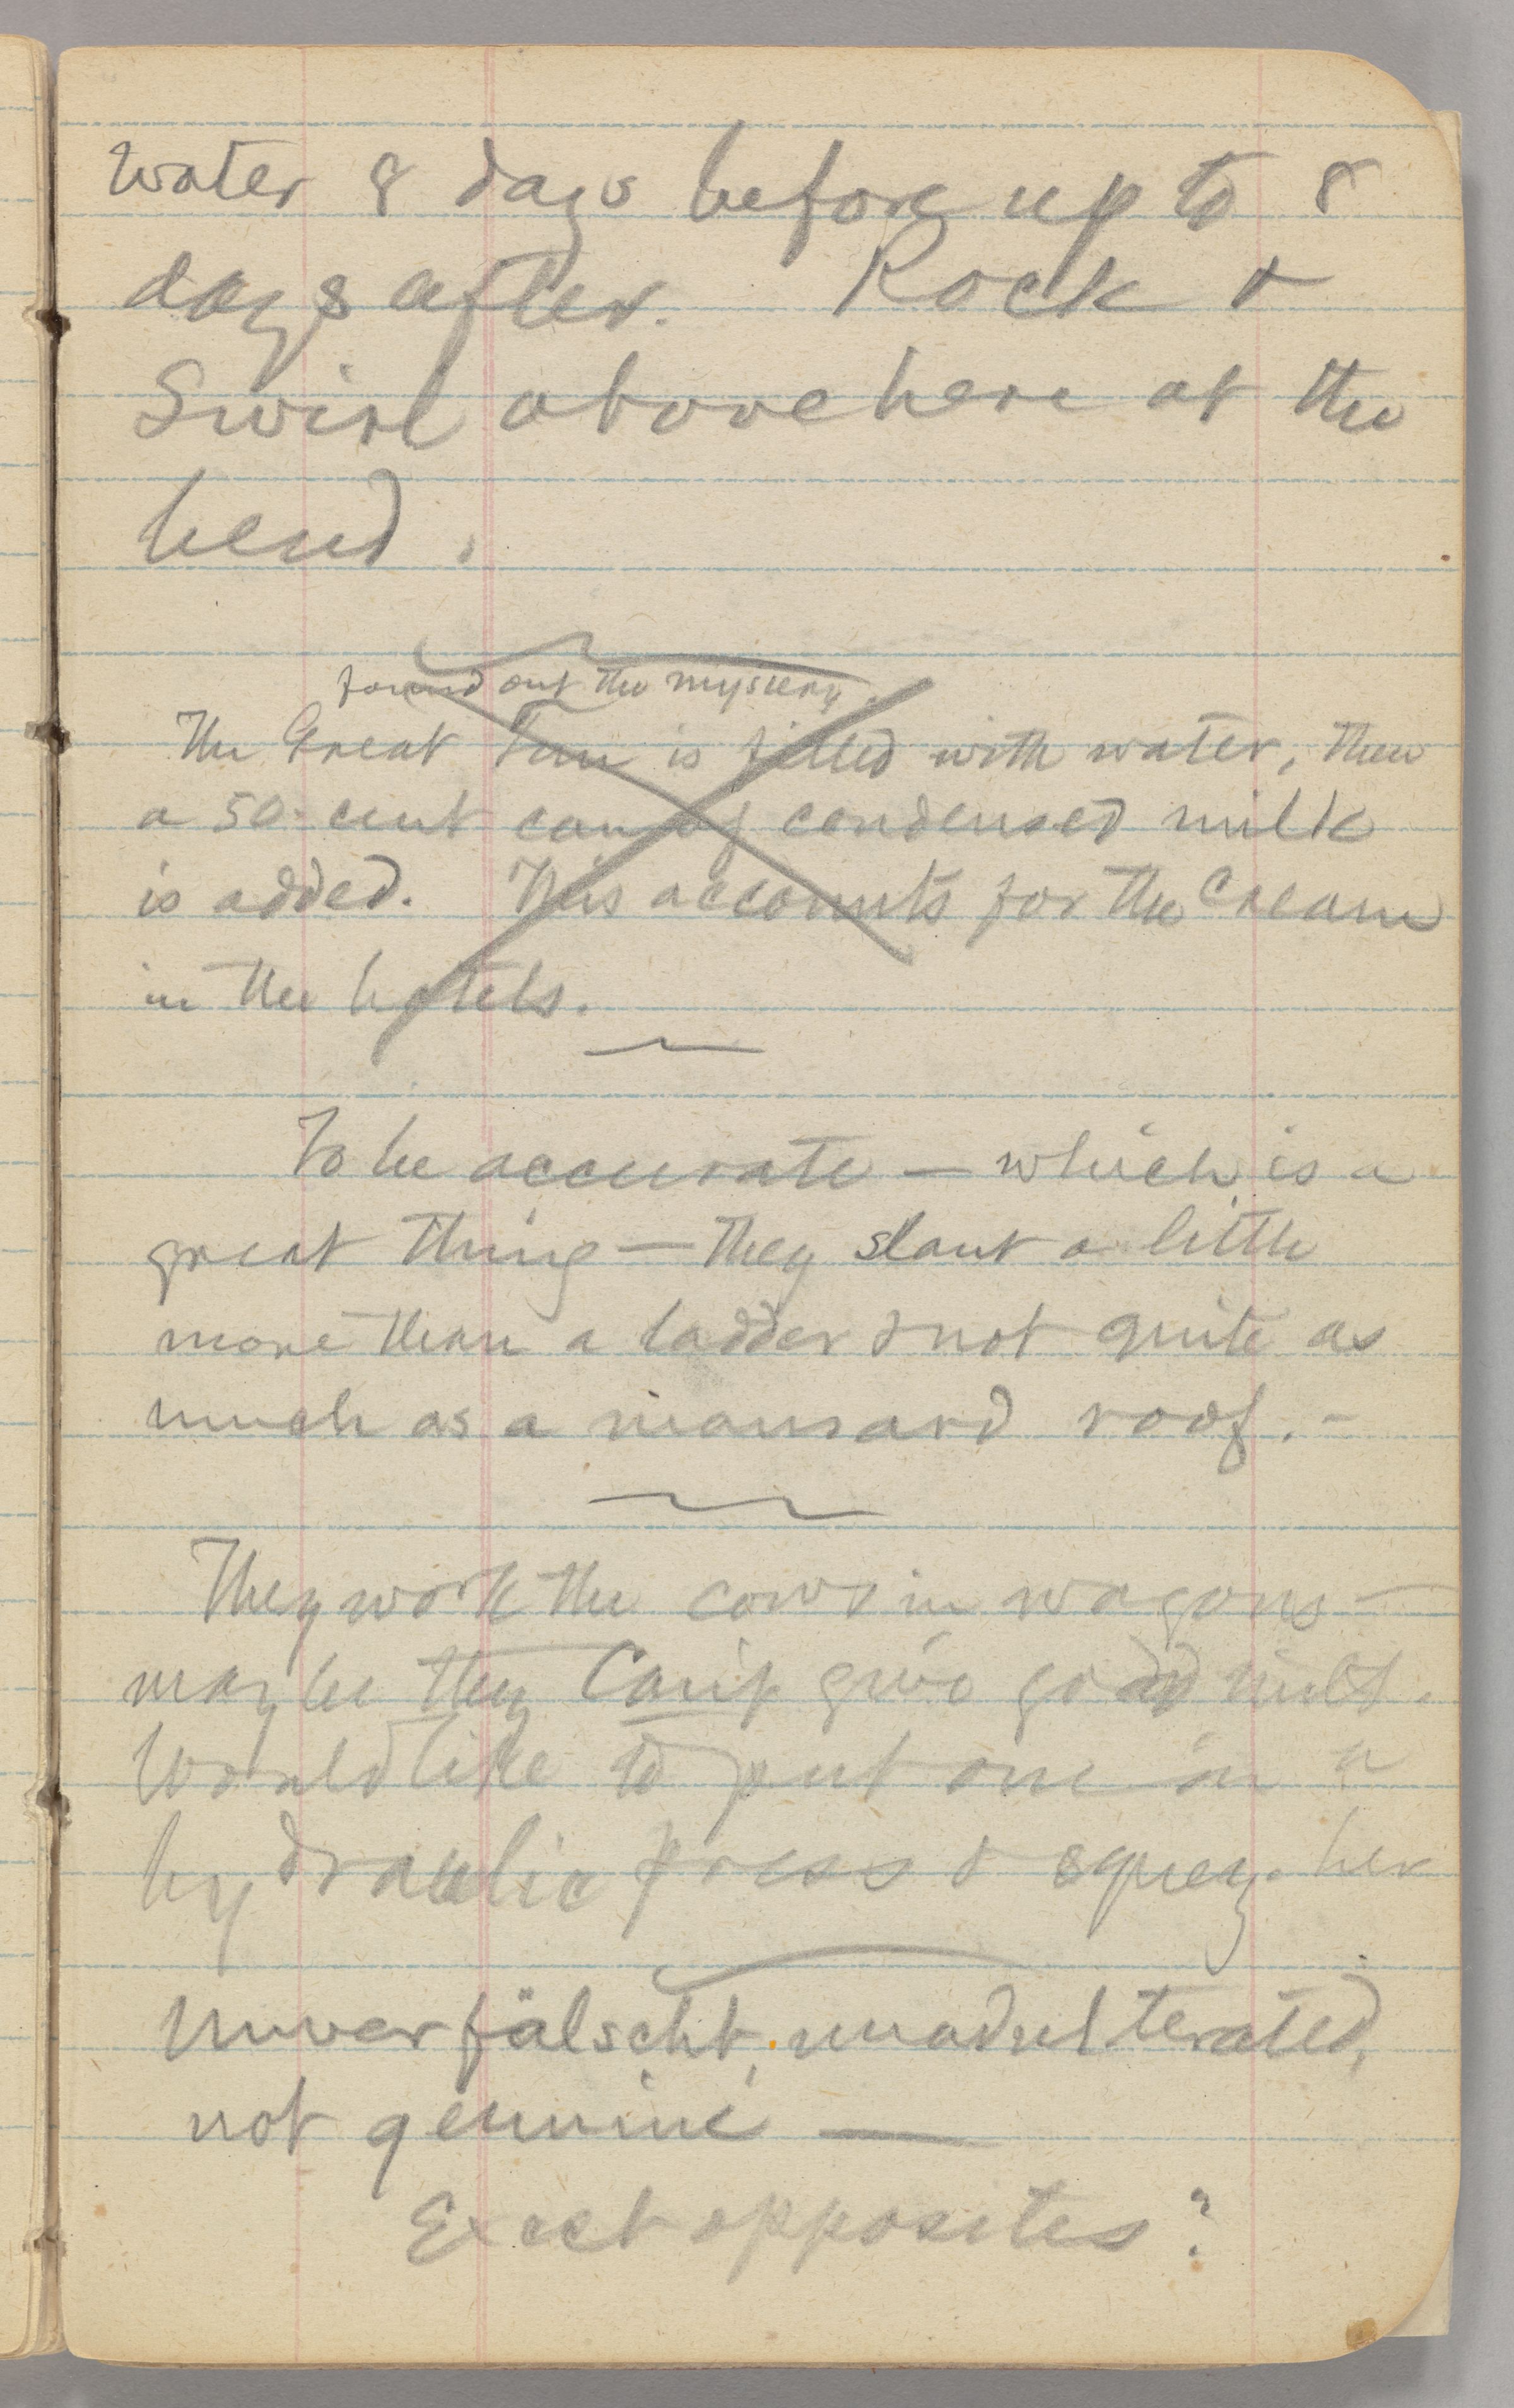 water 8 days before up to 8
days after. Rock &
Swirl above here at the
bend.
found out the mystery.
The Great Tun is filled with water, then
a 50-cent can of condensed milk
is added. This accounts for the cream
in the hotels.
To be accurate — which is a
great thing — they slant a little
more than a ladder & not quite as
much as a mansard roof. —
They work the cows in wagons —
maybe they can't give good milk.
Would like to put one in a
hydraulic press & squeeze her
Unverfälscht, unadulterated,
not genuine —
Exact opposites?